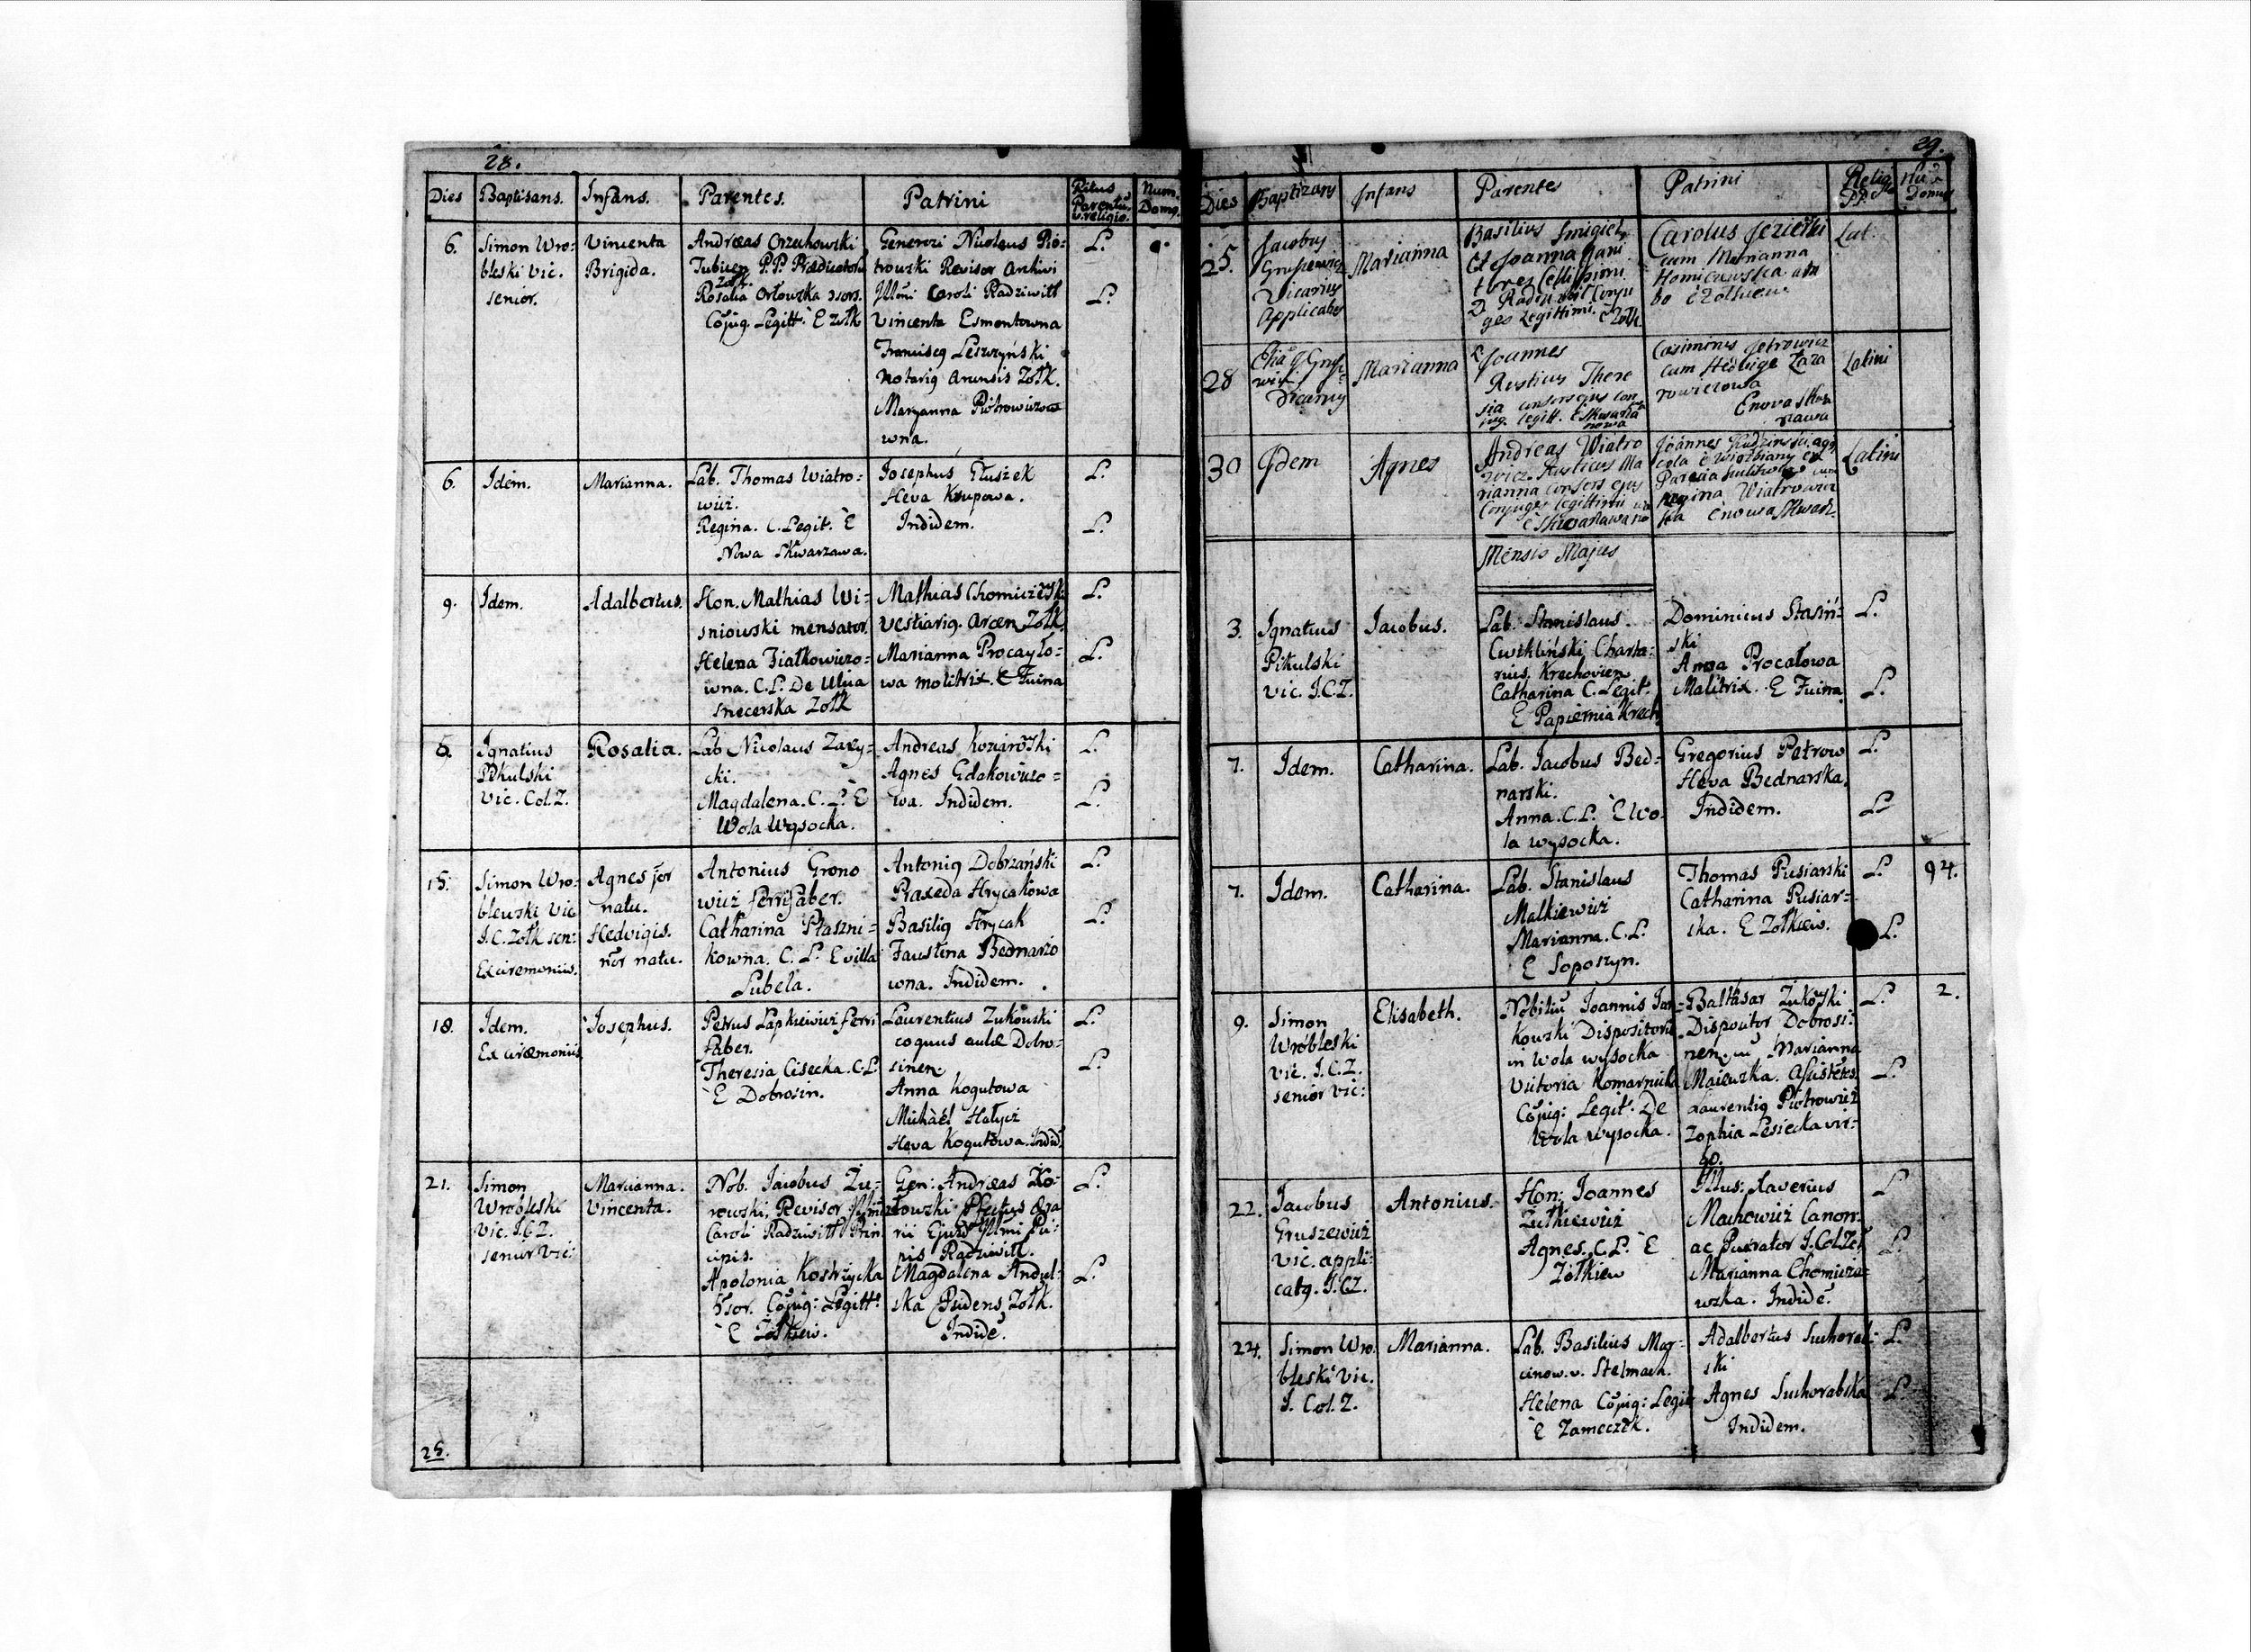 28.
Dies Baptisans. Infans. Parentes. Patrini Ritus Parentũ v. religio. Num. Domq.
6.
Simon Wro:
bleski Vic.
senior.
Vincenta
Brigida.
Andreas Orzechowski
Tubicen P.P. Prædicatorũ
Zolk.
Rosalia Orłowska
Cõjug. Legitt. E Zolk
Generosi Nicolaus Pio:
trowski Revisor Archivi
Illmi Caroli Radziwiłł
Vincenta Esmontowna
Franciscq Leszczyński
Notariq Zolk.
Maryanna Piotrowiczow
wna.
L.
L.
6.
Idem.
Marianna.
Lab. Thomas Wiatro:
wicz.
Regina. C. Legit. E
Nowa Skwarzawa.
Josephus Głuszek
Héva Krupowa.
Indidem.
L.
L.
9.
Idem.
Adalbertus.
Hon. Mathias Wi:
sniowski mensator.
Helena Fiałkowiczo:
wna. C.L. De Ulica
Snecerska Zolk
Mathias Chomiczewsk
Vestiariq. Arcen Zolk.
Marianna Procayło:
wa molitrix. E Fuina
L.
L.
5.
Ignatius
Pikulski
Vic. Col. Z.
Rosalia.
Lab Nicolaus Zarzy:
cki.
Magdalena. C. L. E
Wola Wysocka.
Andreas Koziarowski
Agnes Gdakowiczo=
wa. Indidem.
L.
L.
15.
Simon Wro:
bleuski Vic
I.C. Zolk sen:
Ex ciremoniis.
Agnes
natu.
Hedvigis.
natu.
Antonius Grono
wicz ferrifaber.
Catharina Ptaszni=
kowna. C. L. E villa
Lubela.
Antoniq Dobrzański
Praxeda Hrycakowa
Basiliq Hrycak
Faustina Bednarzo
wna. Indidem.
L.
L.
18.
Idem.
Ex ciræmoniis.
Josephus.
Petrus Lapkiewicz ferri
faber.
Theresia Cisecka. C.L.
E Dobrosin.
Laurentius Zukowski
coquus aulæ Dobro=
sinen.
Anna Kogutowa
Michaël Hałycz
Heva Kogutowa. Indid.
L.
L.
21.
Simon
Wrobleski
Vic. I.C.Z.
senior Vic:
Marianna.
Vincenta.
Nob. Jacobus Zu=
rowski, Revisor Illmi
Caroli Radziwiłł Prin:
cipis.
Apolonia Kostrzycka
Cõjug: Legitt:
E Zołkiew.
Gen: Andræas Ko=
towski Pfectus Æra
rii Ejusd Illmi Pri:
pis Radziwiłł.
Magdalena Andul=
ska Zolk.
Indidẽ.
L.
L.
25.
29.
Dies Baptizans Infans Parentes Patrini Relig PP. Nũ Domus
25.
Jacobus
Grusewicz
Vicarius
Applicatus
Marianna
Basilius Smigiel,
et Joanna Jani
tores Cellissimi
D. Radziwil Conju
ges legittimi. e Zolk.
Carolus Jezierski
cum Marianna
Homicewska am
bo e Zolkiew
Lat.
28
wicz
Vicarius
Marianna
Joannes
Rusticus There
sia consors ejus con
jug. legitt. e Skwarza
nowa
Casimirus Petrowicz
cum Hedvige Zaza
rowiczowa
E nova Skwa
rzawa
Latini
30
Idem
Agnes
Andreas Wiatro
wicz Rusticus Ma
rianna consors ejus
Conjuges legittimi
e Skwarzawa no
Joannes
cola e Wiązbiany ex
cum
Regina Wiatrowicz
ska e nowa Skwarz.
Latini
Mensis Majus
3.
Ignatius
Pikulski
Vic. I.C.Z.
Jacobus.
Lab. Stanislaus.
Cwikliński Charta:
rius. Krechovien
Catharina C. Legit.
E Papiernia Krech.
Dominicus Stasiń:
ski
Anna Procałowa
Malitrix. E Fuina
L.
L.
7.
Idem.
Catharina.
Lab. Jacobus Bed=
narski.
Anna. C.L. E Wo.
la wysocka.
Gregorius Petrow
Héva Bednarska.
Indidem.
L.
L.
7.
Idem.
Catharina.
Lab. Stanislaus
Malkiewicz
Marianna. C.L.
E Soposzyn.
Thomas Pusiarski
Catharina Pusiar=
ska. E Zolkiew.
L.
L.
94.
9.
Simon
Wrobleski
vic. I.C.Z.
senior Vic:
Elisabeth.
Nobiliũ Joannis Jan=
kowski Dispositoris
in Wola wysocka
Victoria Komarnicka
Cõjug: Legit. De
Wola wysocka.
Baltasar Zukowski
Dispositor Dobrosi:
nen. Marianna
Maiewska. Assistẽtes.
Laurentiq Piotrowicz
Zophia Lesiecka vir=
go.
L.
L.
2.
22.
Jacobus
Gruszewicz
vic. appli:
catq. I.C.Z.
Antonius.
Hon: Joannes
Zulkiewicz
Agnes. C.L. E
Zolkiew
Illus: Xaverius
Machowicz Canon.
ac Curator I. Col. Zol.
Marianna Chomicze=
wska. Indidẽ.
L
L.
24.
Simon Wro.
bleski Vic.
I. Col. Z.
Marianna.
Lab. Basilius Mar=
cinow. v. Stelmach.
Helena Cõjug: Legit
E Zameczek.
Adalbertus Suchorab:
ski
Agnes Suchorabska
Indidem.
L.
L.